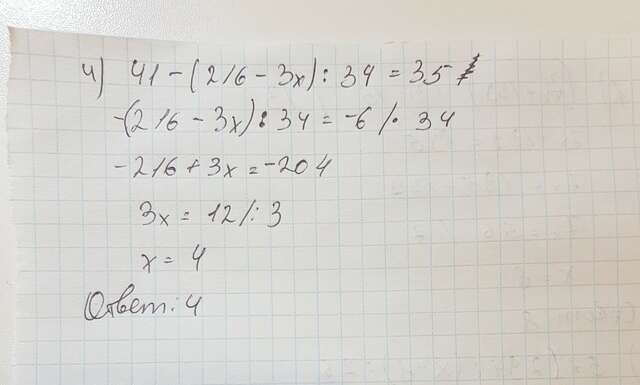 4) 41 - (216 - 3x) : 34 = 35
-(216 - 3x) : 34 = -6 /· 34
-216 + 3x = -204
3x = 12 /: 3
x = 4
Ответ: 4